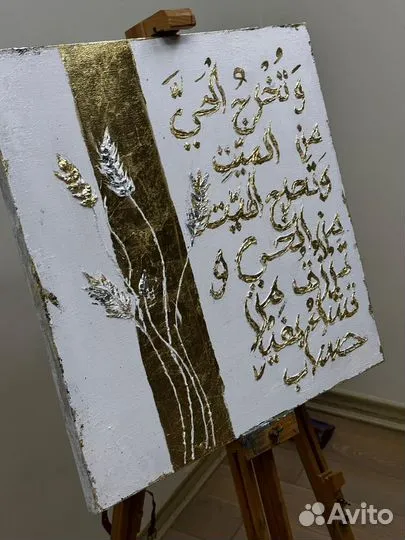 وَتُخْرِجُ الْحَيَّ
مِنَ الْمَيِّتِ
وَتُخْرِجُ الْمَيِّتَ
مِنَ الْحَيِّ وَ
تَرْزُقُ مَن
تَشَاءُ بِغَيْرِ
حِسَابٍ
Avito